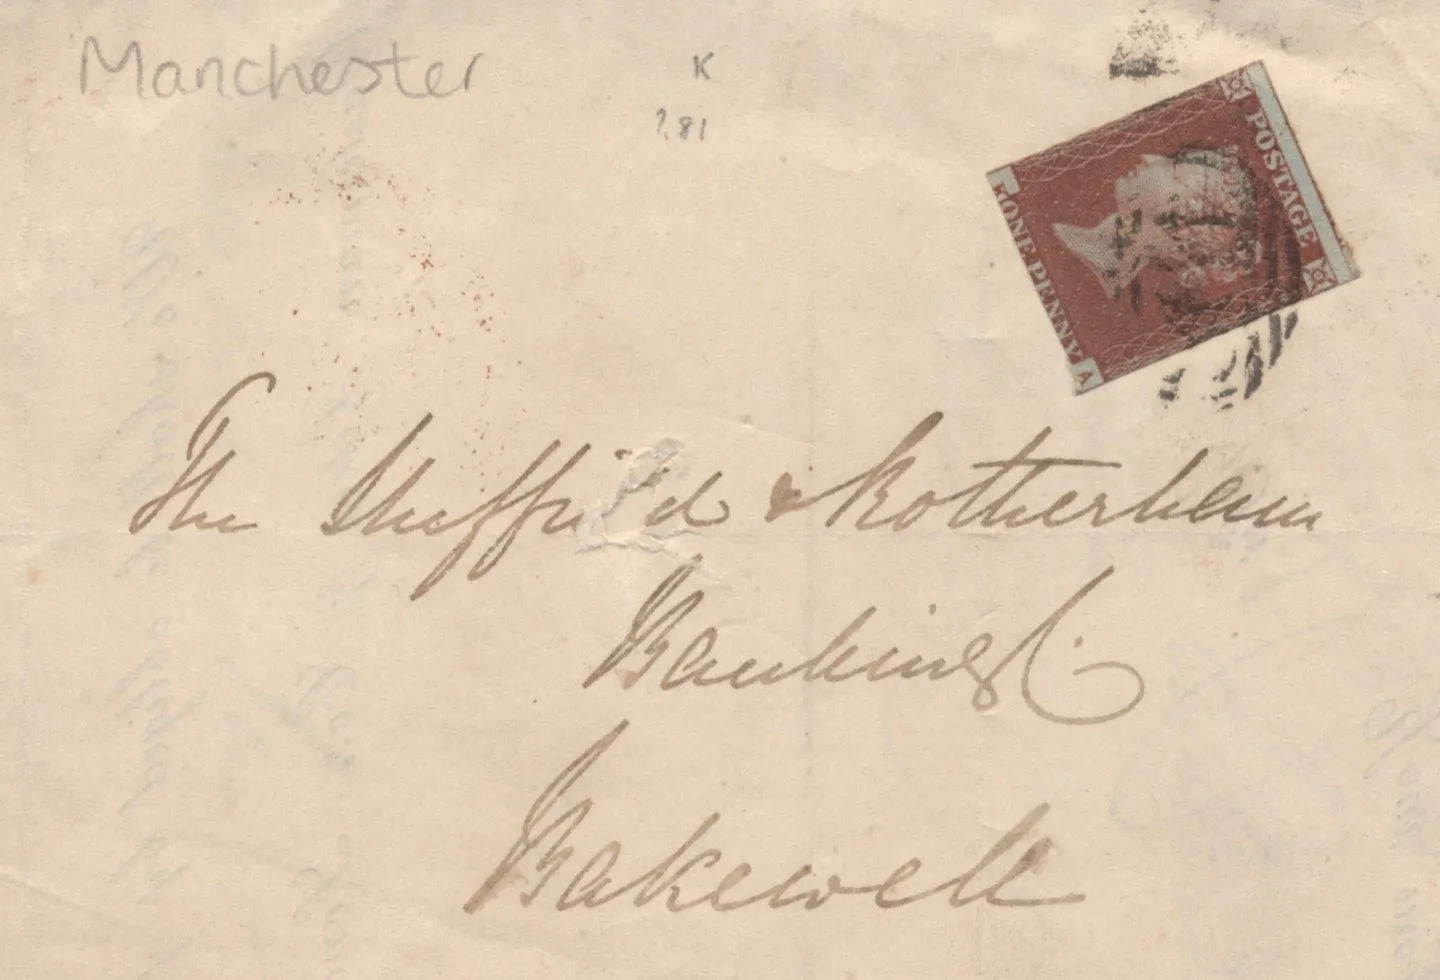 Manchester
K
781
POSTAGE
ONE PENNY
A
The Sheffield & Rotherham
Banking Co.
Bakewell